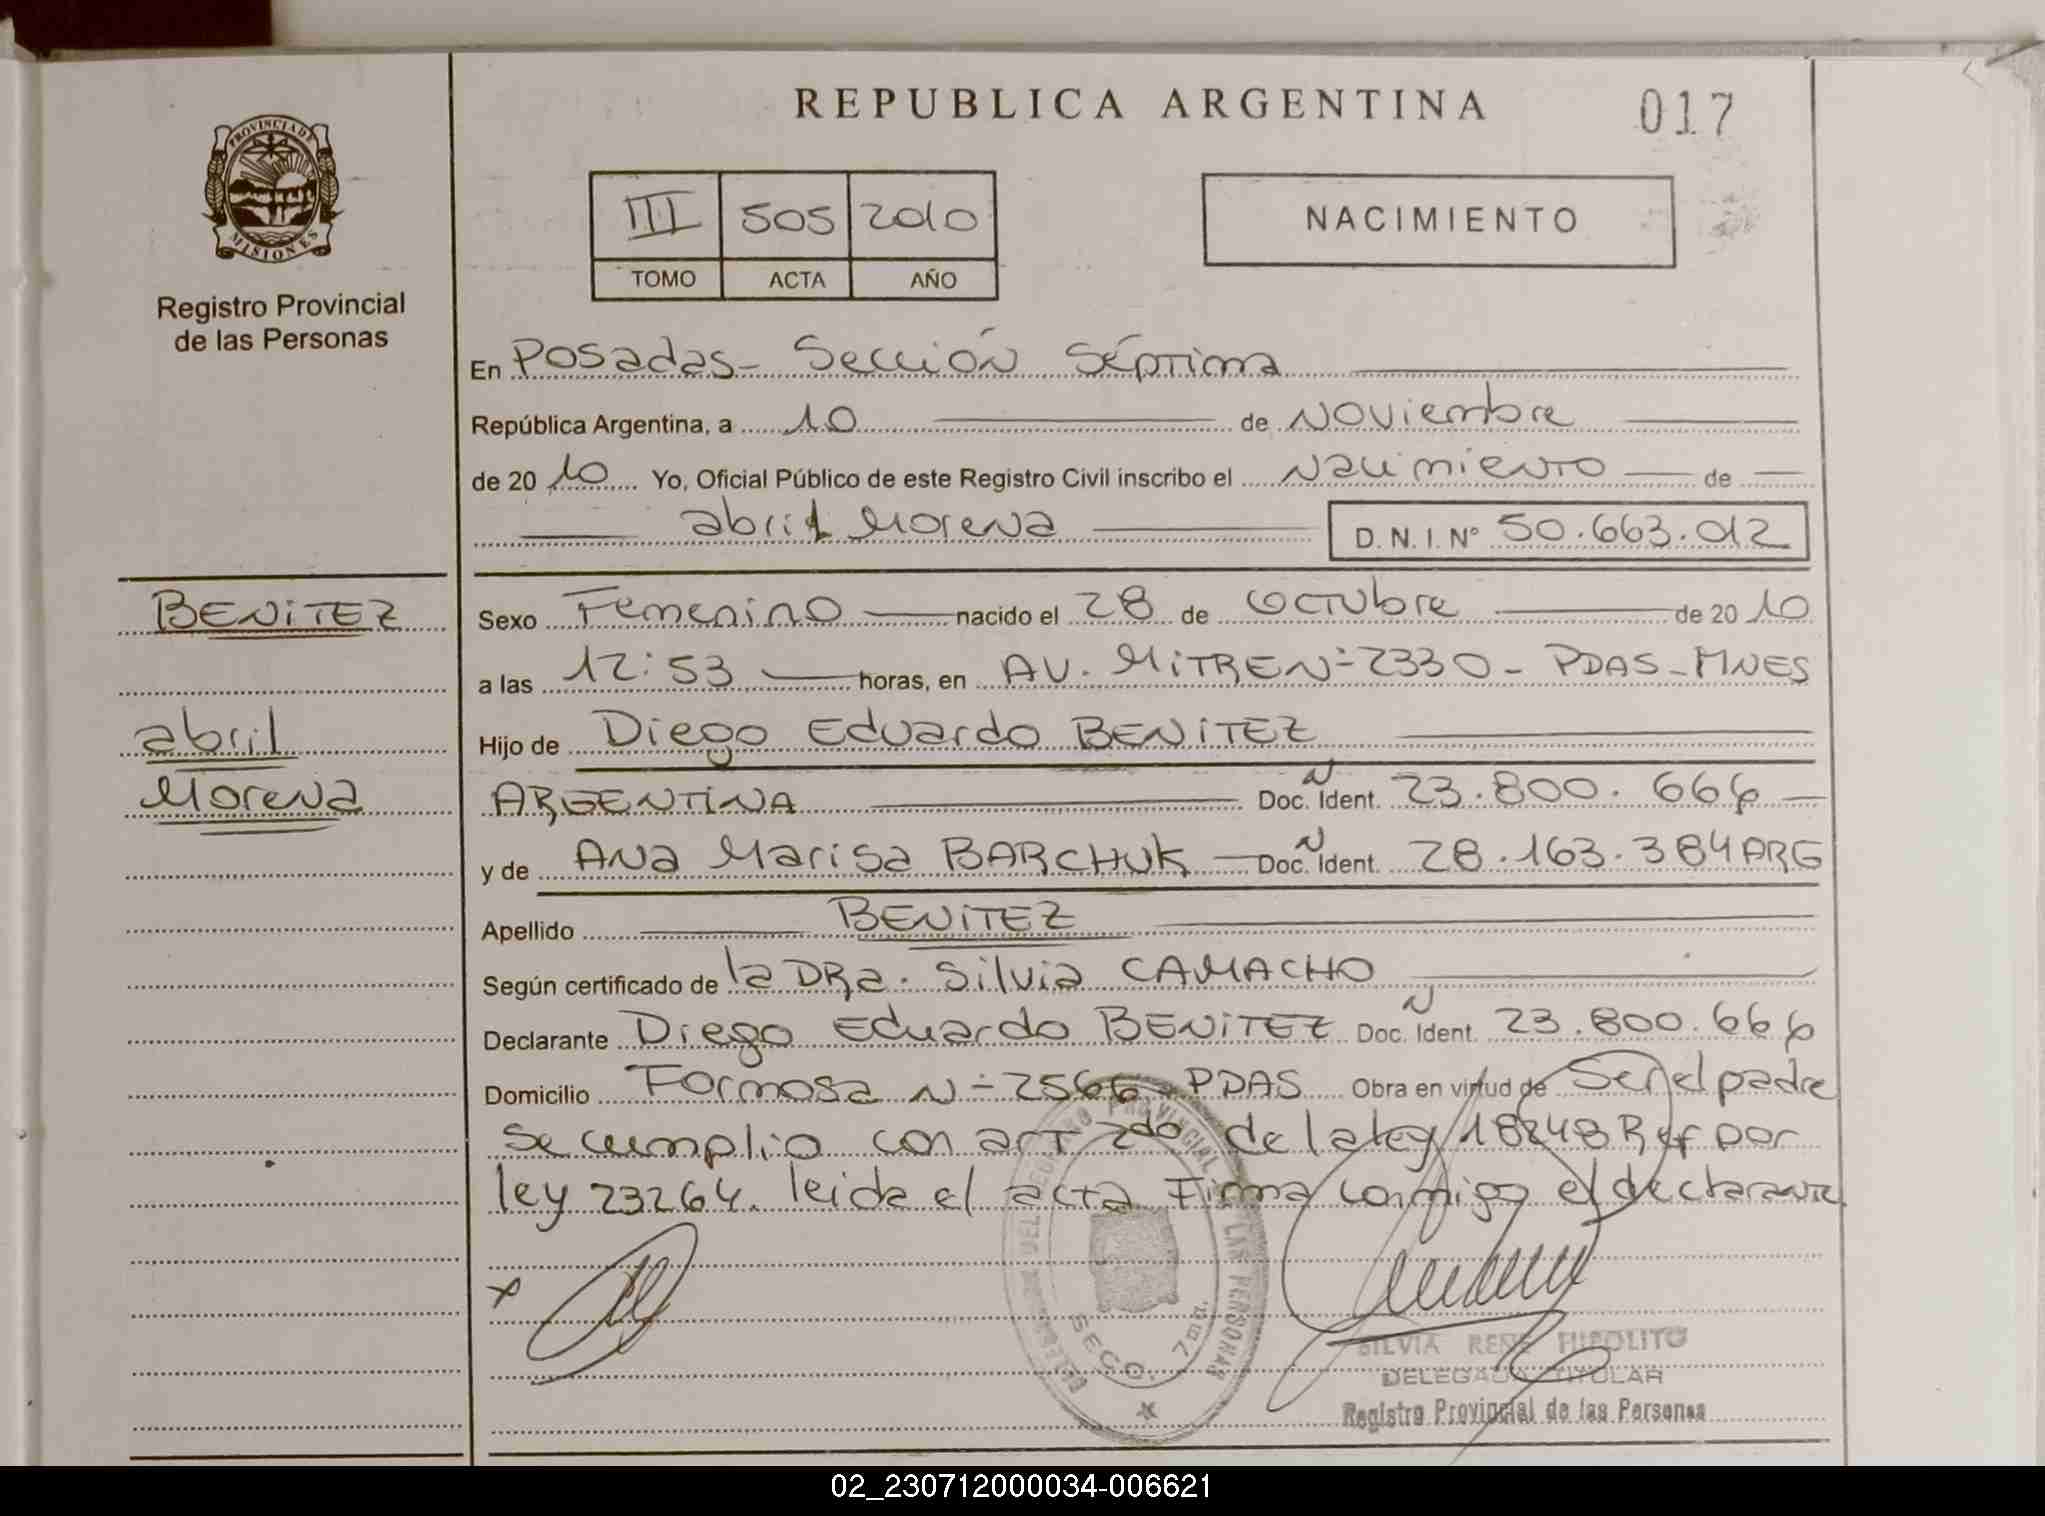 REPUBLICA ARGENTINA
017
PROVINCIA DE
MISIONES
Registro Provincial
de las Personas
III 505 2010
TOMO ACTA AÑO
NACIMIENTO
En Posadas- Sección Séptima
República Argentina, a 10 de Noviembre
de 20 10 Yo, Oficial Público de este Registro Civil inscribo el Nacimiento de
abril Morena D.N.I. Nº 50.663.012
BENITEZ
abril
Morena
Sexo Femenino nacido el 28 de Octubre de 20 10
a las 12:53 horas, en AV. MITRE Nº 2330 - PDAS-MNES
Hijo de Diego Eduardo BENITEZ
ARGENTINA Doc. Ident. 23.800.666
y de Ana Marisa BARCHUK Doc. Ident. 28.163.384 ARG
Apellido BENITEZ
Según certificado de la DRa. Silvia CAMACHO
Declarante Diego Eduardo BENITEZ Doc. Ident. 23.800.666
Domicilio Formosa Nº 2566 PDAS Obra en virtud de Ser el padre
se cumplio con art 2do de la ley 18248 Ref por
ley 23264. leida el acta Firma conmigo el declarante
x
DEL REGISTRO PROVINCIAL DE LAS PERSONAS
SECC. 7ma.
SILVIA RENE HIPOLITO
DELEGADA TITULAR
Registro Provincial de las Personas
02_230712000034-006621